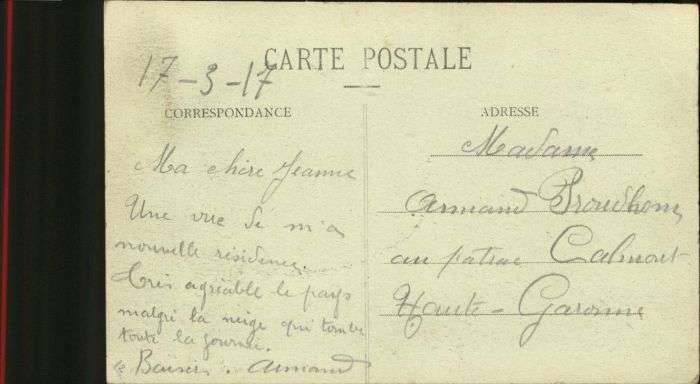 CARTE POSTALE
17-3-17
CORRESPONDANCE
Ma chère Jeanne
Une vue de ma
nouvelle résidence.
Très agréable le pays
malgré la neige qui tombe
toute la journée.
Baisers. Armand
ADRESSE
Madame
Armand Proudhom
au Calmont
Haute-Garonne